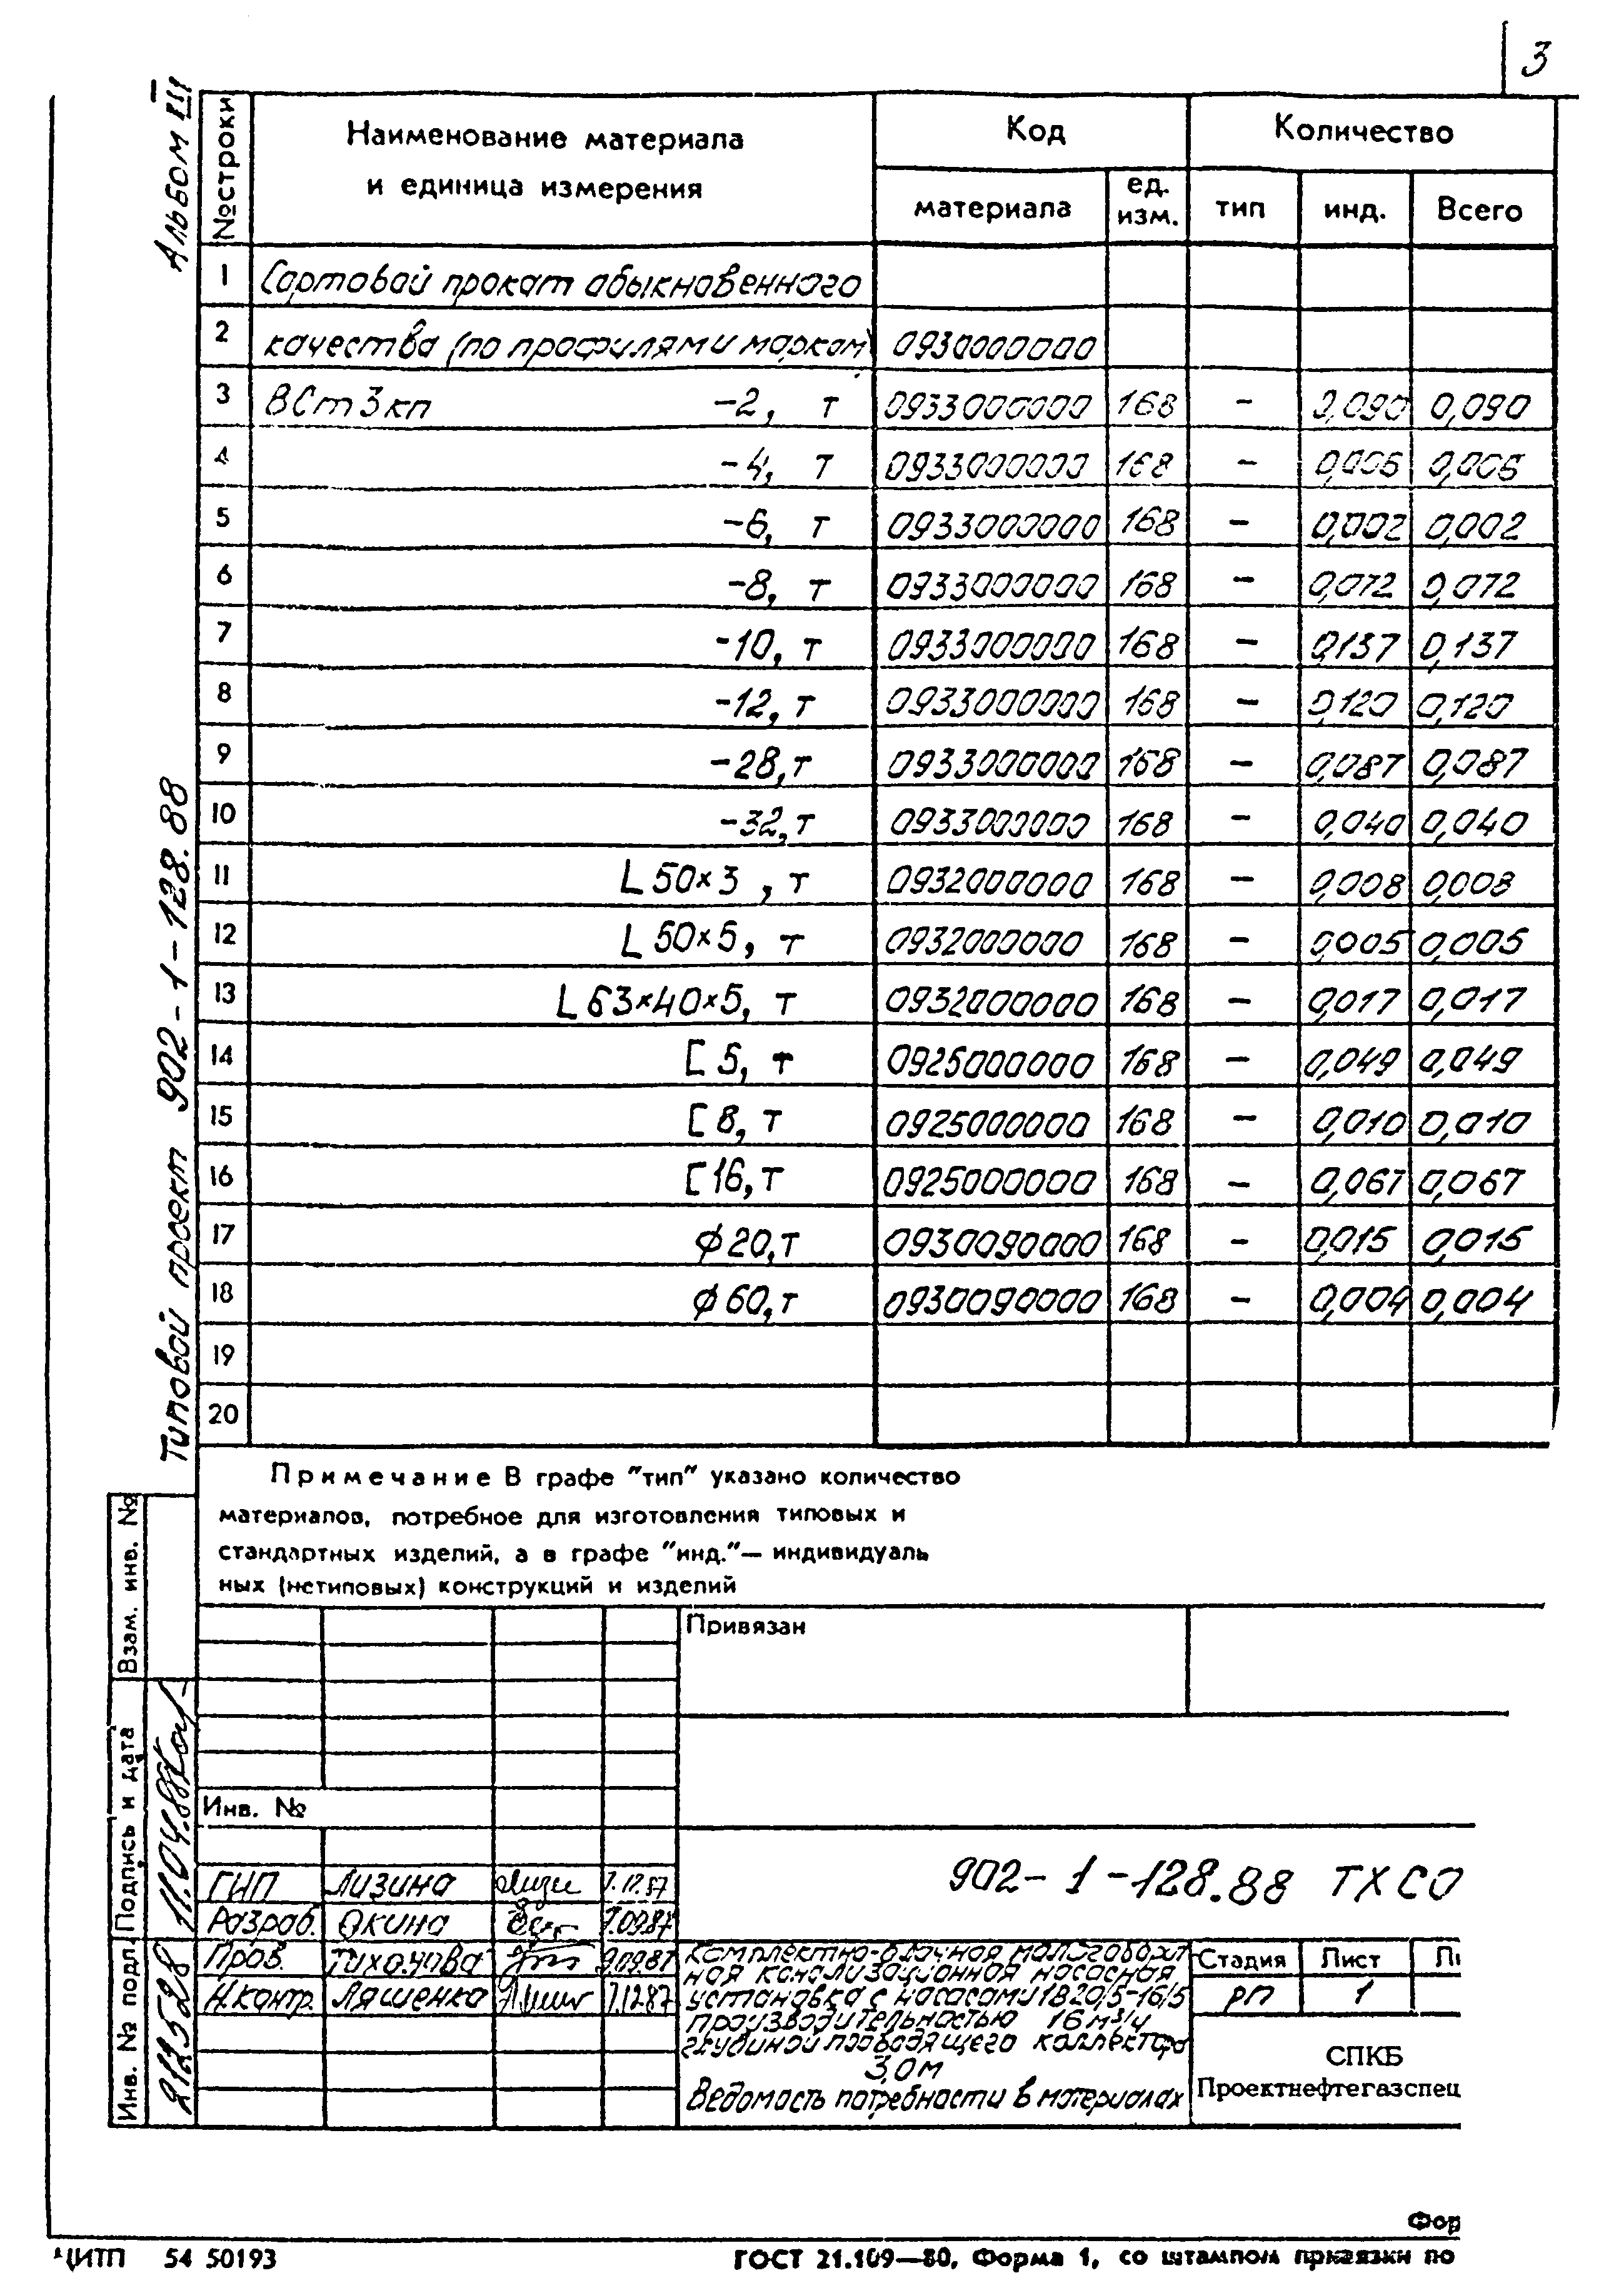 3
Альбом III
Типовой проект 902-1-128.88
№ строки
Наименование материала
и единица измерения
Код
Количество
материала
ед.
изм.
тип
инд.
Всего
1 Сортовой прокат обыкновенного
2 качества (по профилям и маркам) 0930000000
3 ВСт3кп -2, т 0933000000 168 - 0,090 0,090
4 -4, т 0933000000 168 - 0,006 0,006
5 -6, т 0933000000 168 - 0,002 0,002
6 -8, т 0933000000 168 - 0,072 0,072
7 -10, т 0933000000 168 - 0,137 0,137
8 -12, т 0933000000 168 - 0,120 0,120
9 -28, т 0933000000 168 - 0,087 0,087
10 -32, т 0933000000 168 - 0,040 0,040
11 L 50×3, т 0932000000 168 - 0,008 0,008
12 L 50×5, т 0932000000 168 - 0,005 0,005
13 L 63×40×5, т 0932000000 168 - 0,017 0,017
14 [ 5, т 0925000000 168 - 0,049 0,049
15 [ 8, т 0925000000 168 - 0,010 0,010
16 [ 16, т 0925000000 168 - 0,067 0,067
17 ϕ 20, т 0930090000 168 - 0,015 0,015
18 ϕ 60, т 0930090000 168 - 0,004 0,004
19
20
Примечание В графе "тип" указано количество
материалов, потребное для изготовления типовых и
стандартных изделий, а в графе "инд."— индивидуаль
ных (нетиповых) конструкций и изделий
Взам. инв. №
Подпись и дата
11.04.88
Инв. № подл.
Привязан
Инв. №
902-1-128.88 ТХСО
ГИП Лизина 7.12.87
Разраб. Окина 7.09.87
Пров. Тихонова 9.09.87
Н.контр. Ляшенко 7.12.87
Комплектно-блочная малогабарит
ная канализационная насосная
установка с насосами 1В20/5-16/5
производительностью 16 м³/ч
глубиной подводящего коллектора
3,0 м
Ведомость потребности в материалах
Стадия Лист
РП 1
СПКБ
Проектнефтегазспец
Фор
ЦИТП 54 50193
ГОСТ 21.109—80, Форма 1, со штампом привязки по